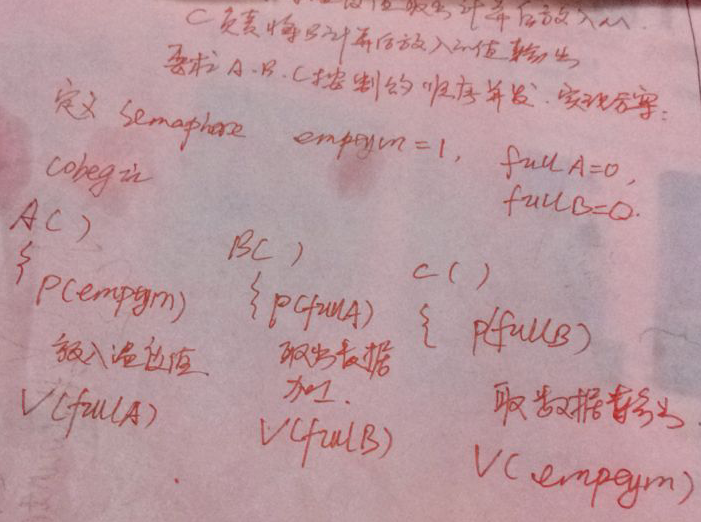 取出计算后放入m.
C负责将B计算后放入m值输出
要求A.B.C按制约顺序并发.实现方案:
定义 semaphore empeym=1, fullA=0,
fullB=0.
cobegin
A()
{
P(empeym)
放入温度值
V(fullA)
B()
{ P(fullA)
取出数据
加工.
V(fullB)
C()
{ P(fullB)
取数据输出
V(empeym)